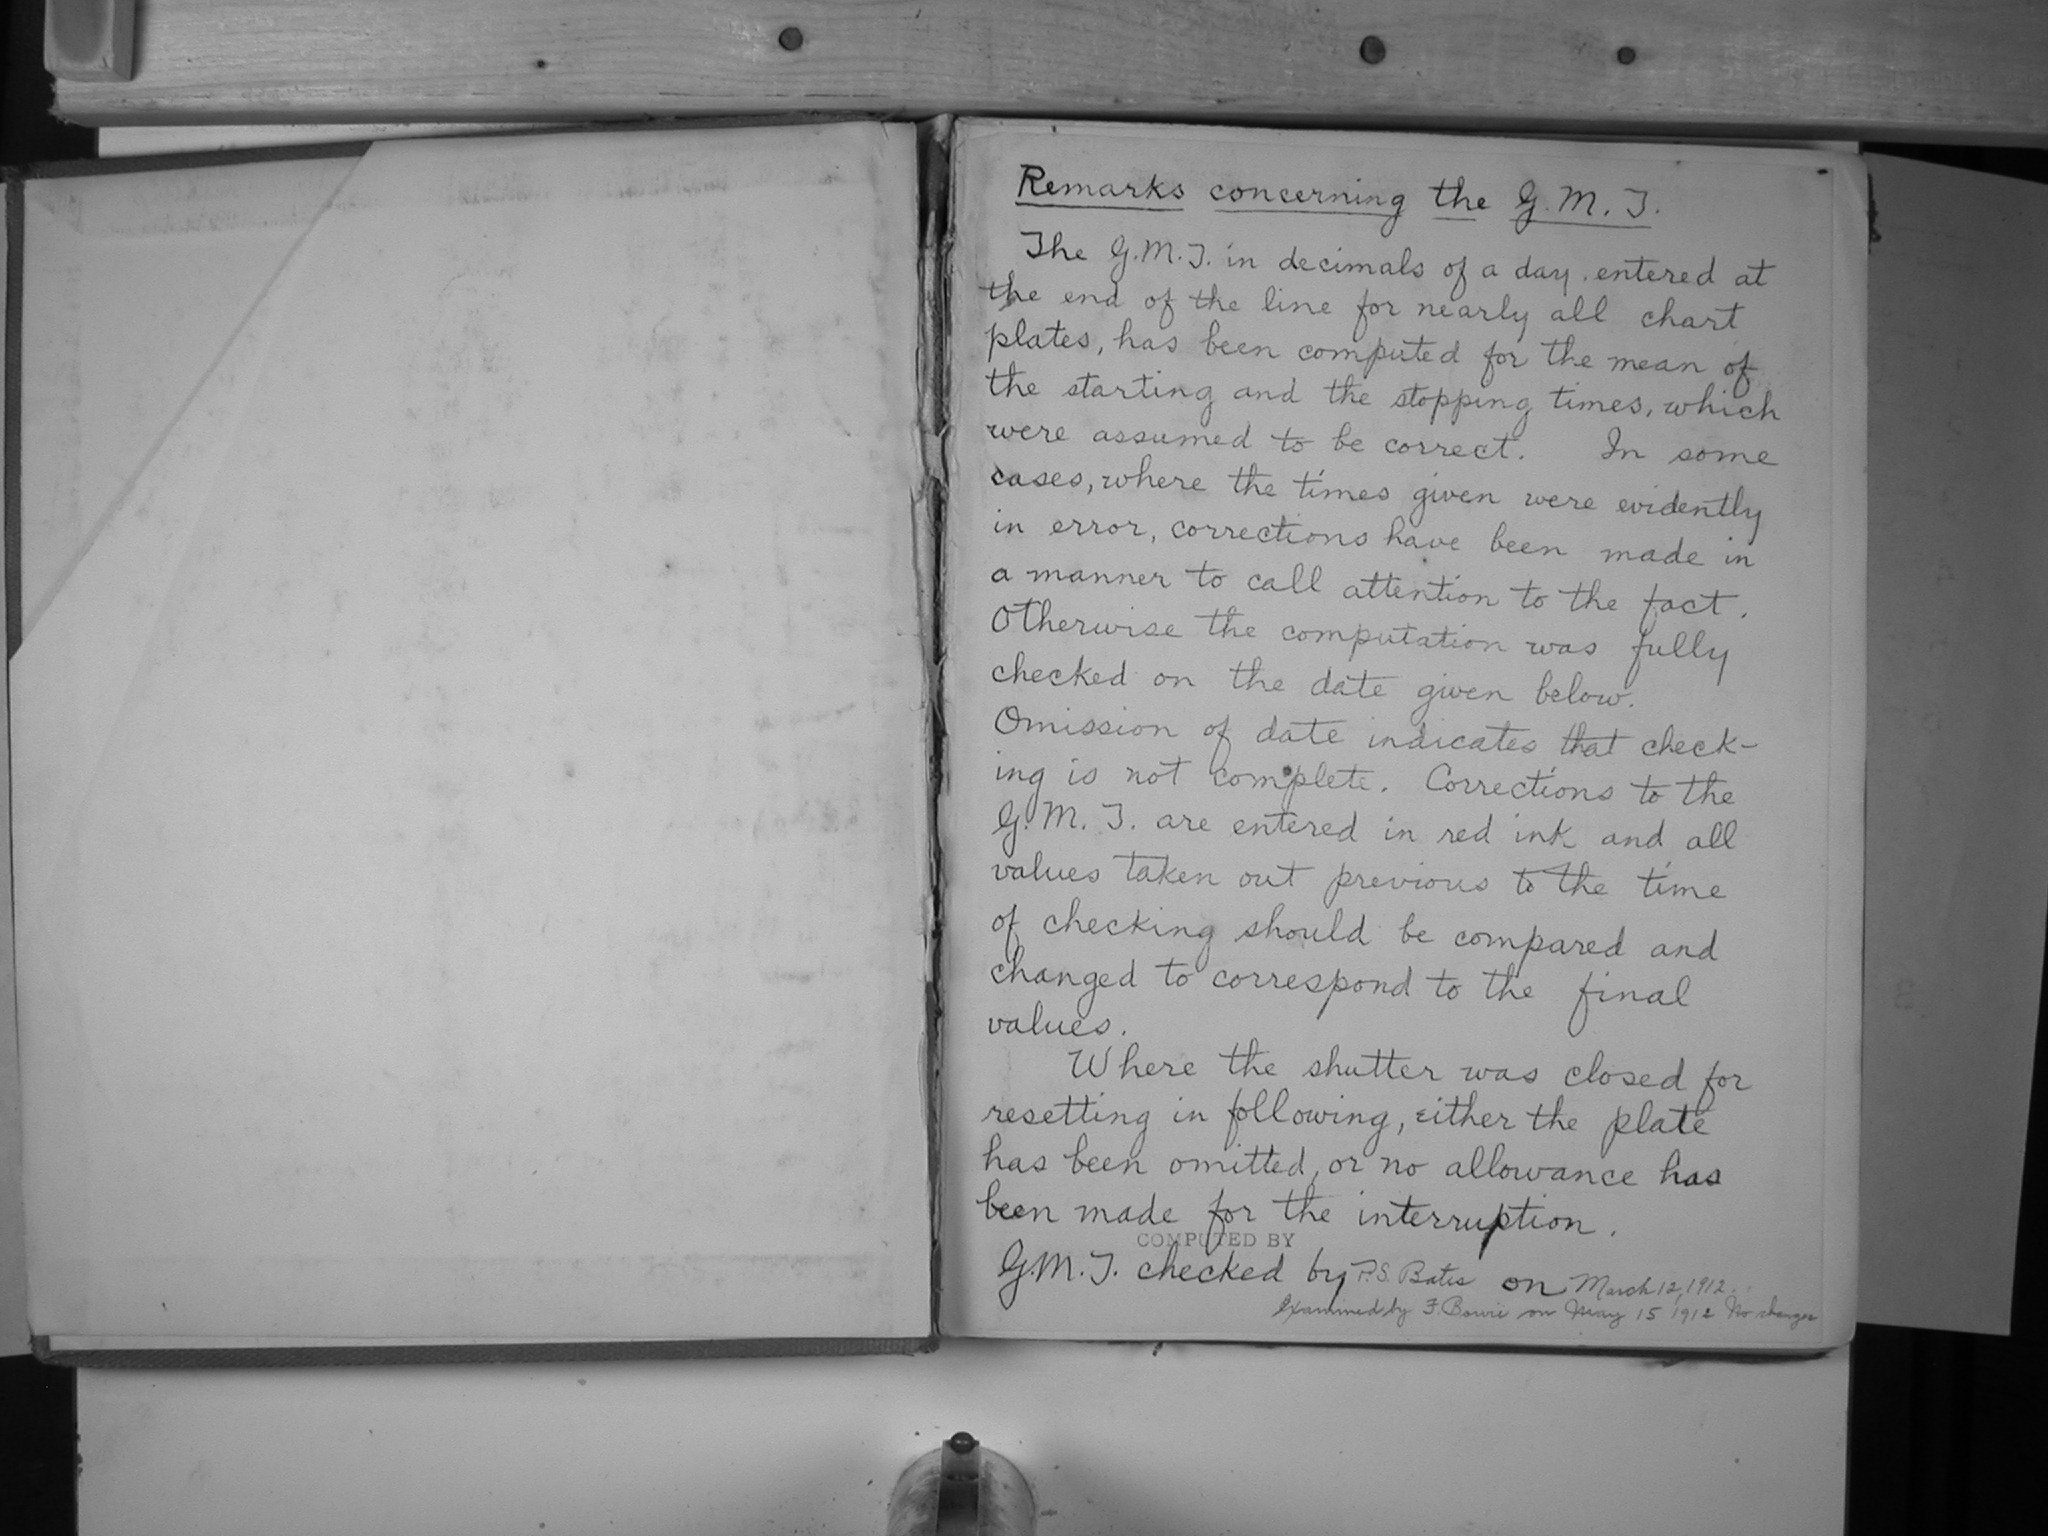 Remarks concerning the G.M.T.
The G.M.T. in decimals of a day, entered at
the end of the line for nearly all chart
plates, has been computed for the mean of
the starting and the stopping times, which
were assumed to be correct. In some
cases, where the times given were evidently
in error, corrections have been made in
a manner to call attention to the fact.
Otherwise the computation was fully
checked on the date given below.
Omission of date indicates that check-
ing is not complete. Corrections to the
G.M.T. are entered in red ink and all
values taken out previous to the time
of checking should be compared and
changed to correspond to the final
values.
Where the shutter was closed for
resetting in following, either the plate
has been omitted, or no allowance has
been made for the interruption.
COMPUTED BY
G.M.T. checked by P.S. Bates on March 12, 1912.
Examined by F. Bowie on May 15 1912 No changes